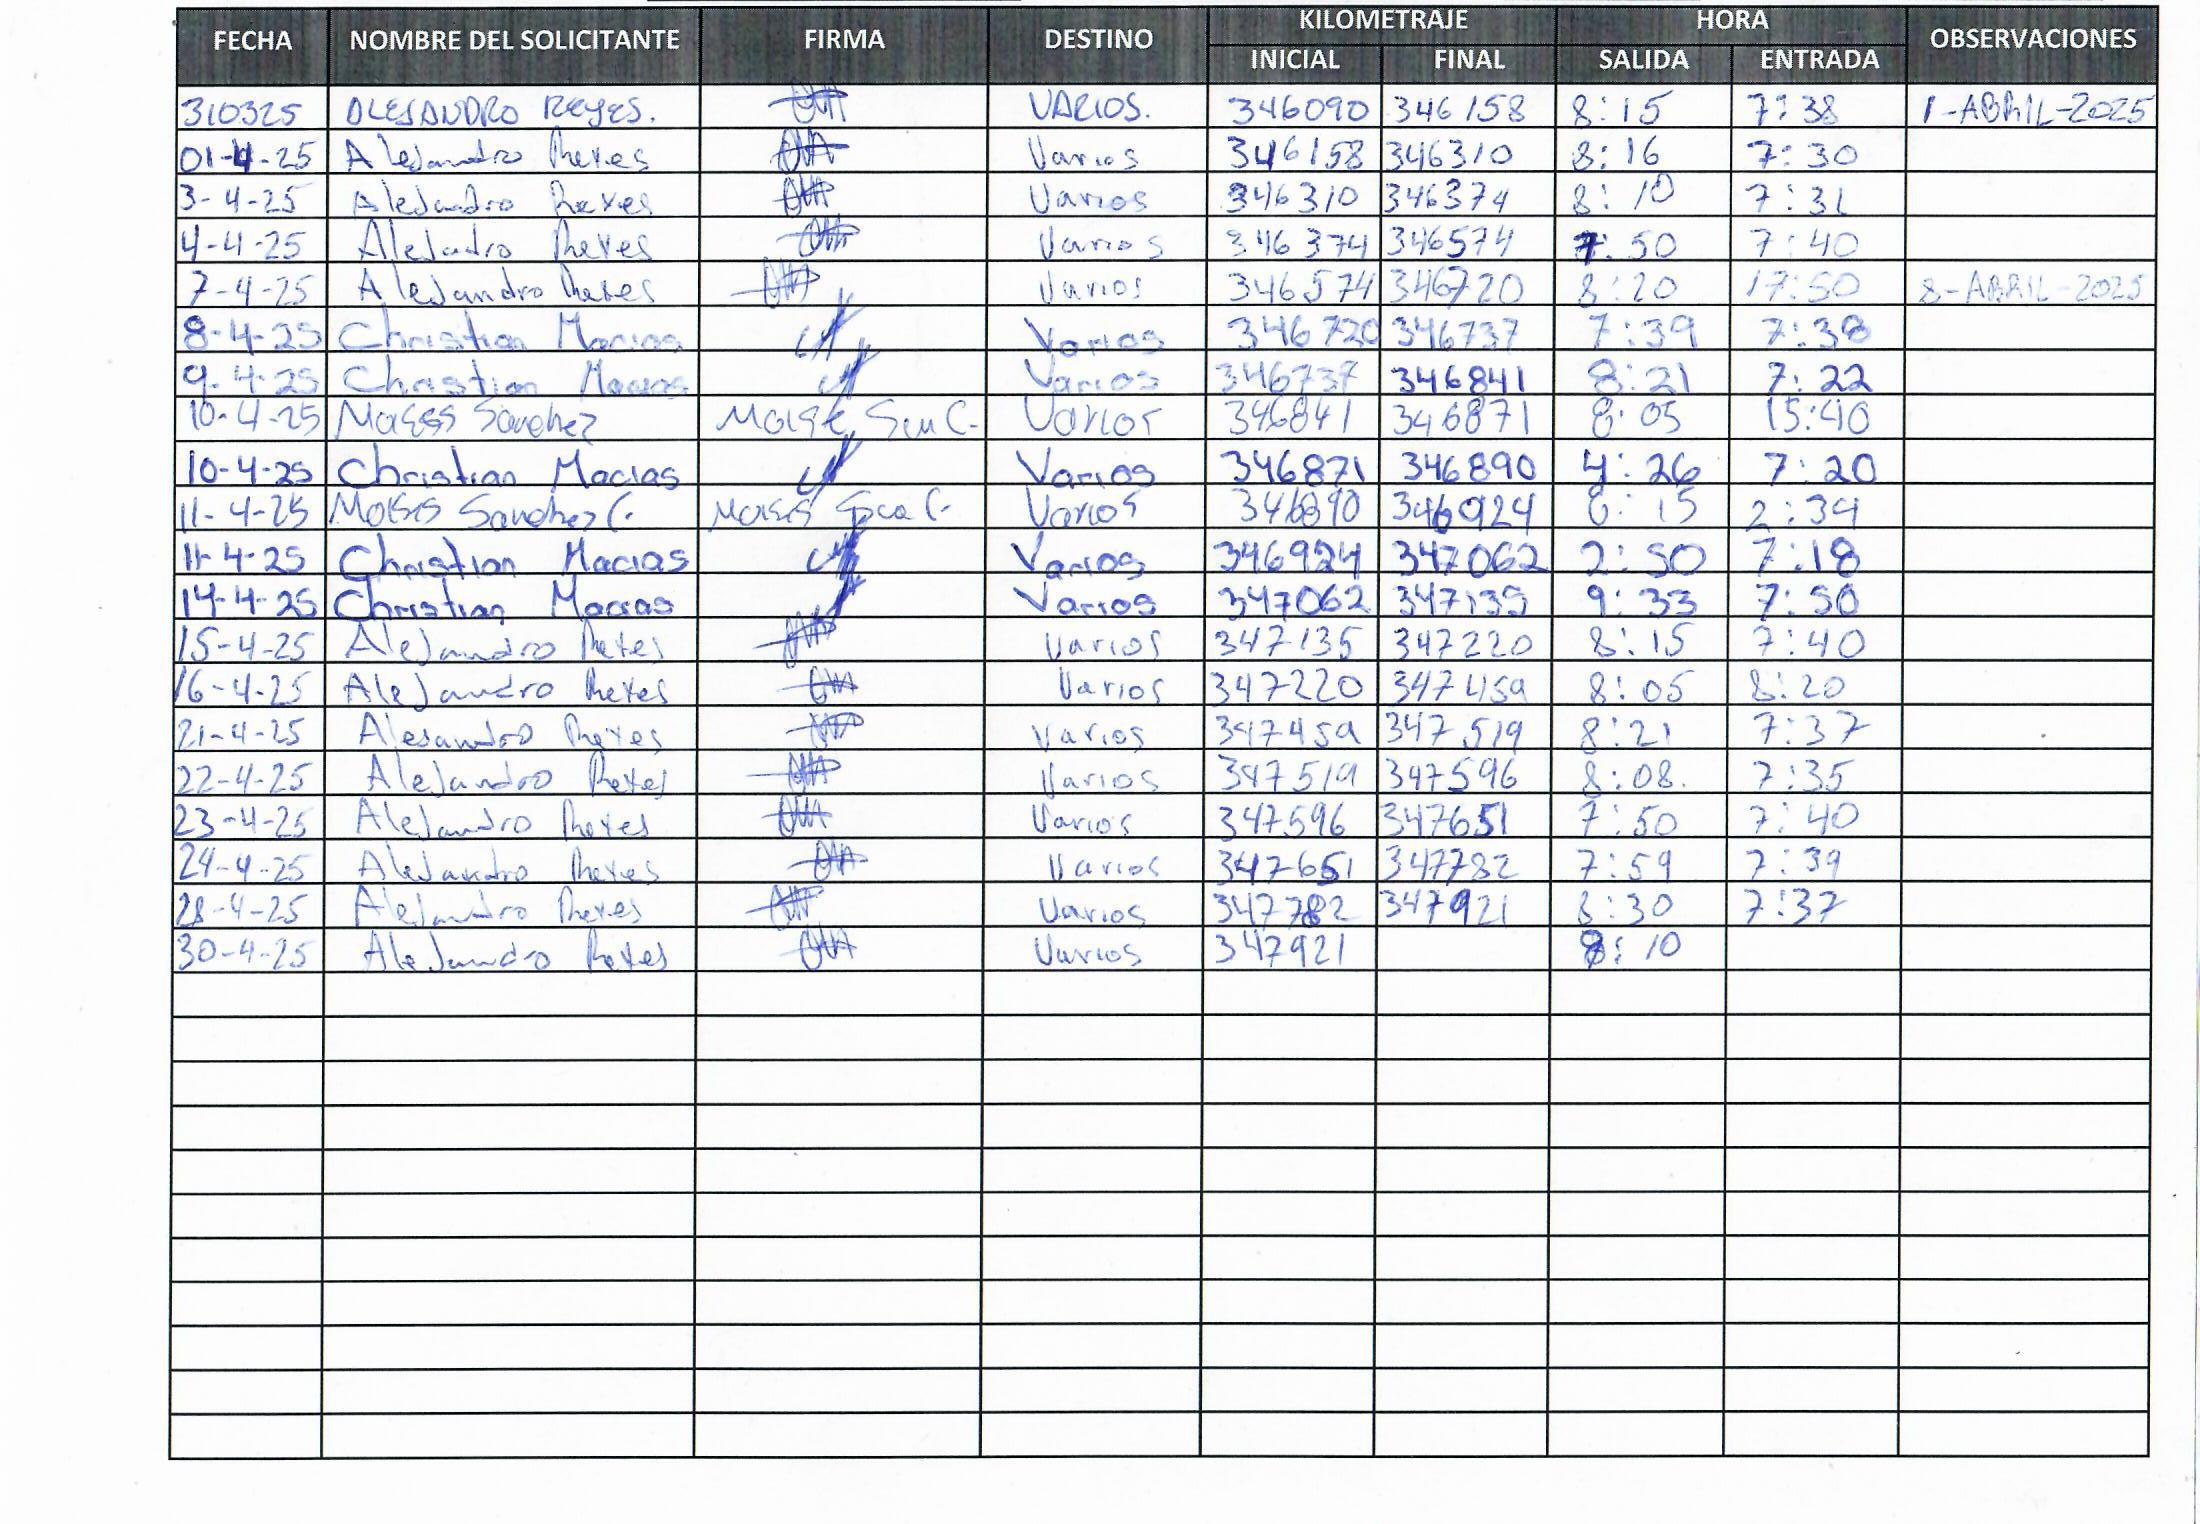 FECHA NOMBRE DEL SOLICITANTE FIRMA DESTINO KILOMETRAJE HORA OBSERVACIONES
INICIAL FINAL SALIDA ENTRADA
310325 ALEJANDRO REYES. VARIOS. 346090 346158 8:15 7:38 1-ABRIL-2025
01-4-25 Alejandro Reyes Varios 346158 346310 8:16 7:30
3-4-25 Alejandro Reyes Varios 346310 346374 8:10 7:31
4-4-25 Alejandro Reyes Varios 346374 346574 7:50 7:40
7-4-25 Alejandro Reyes Varios 346574 346720 8:20 17:50 8-ABRIL-2025
8-4-25 Christian Macias Varios 346720 346737 7:39 7:38
9-4-25 Christian Macias Varios 346737 346841 8:21 7:22
10-4-25 Moises Sanchez Varios 346841 346871 8:05 15:40
10-4-25 Christian Macias Varios 346871 346890 4:26 7:20
11-4-25 Moises Sanchez C. Varios 346890 346924 8:15 2:34
11-4-25 Christian Macias Varios 346924 347062 2:50 7:18
14-4-25 Christian Macias Varios 347062 347135 9:33 7:50
15-4-25 Alejandro Reyes Varios 347135 347220 8:15 7:40
16-4-25 Alejandro Reyes Varios 347220 347459 8:05 8:20
21-4-25 Alejandro Reyes Varios 347459 347519 8:21 7:37
22-4-25 Alejandro Reyes Varios 347519 347596 8:08. 7:35
23-4-25 Alejandro Reyes Varios 347596 347651 7:50 7:40
24-4-25 Alejandro Reyes Varios 347651 347782 7:59 7:39
28-4-25 Alejandro Reyes Varios 347782 347921 8:30 7:37
30-4-25 Alejandro Reyes Varios 347921 8:10